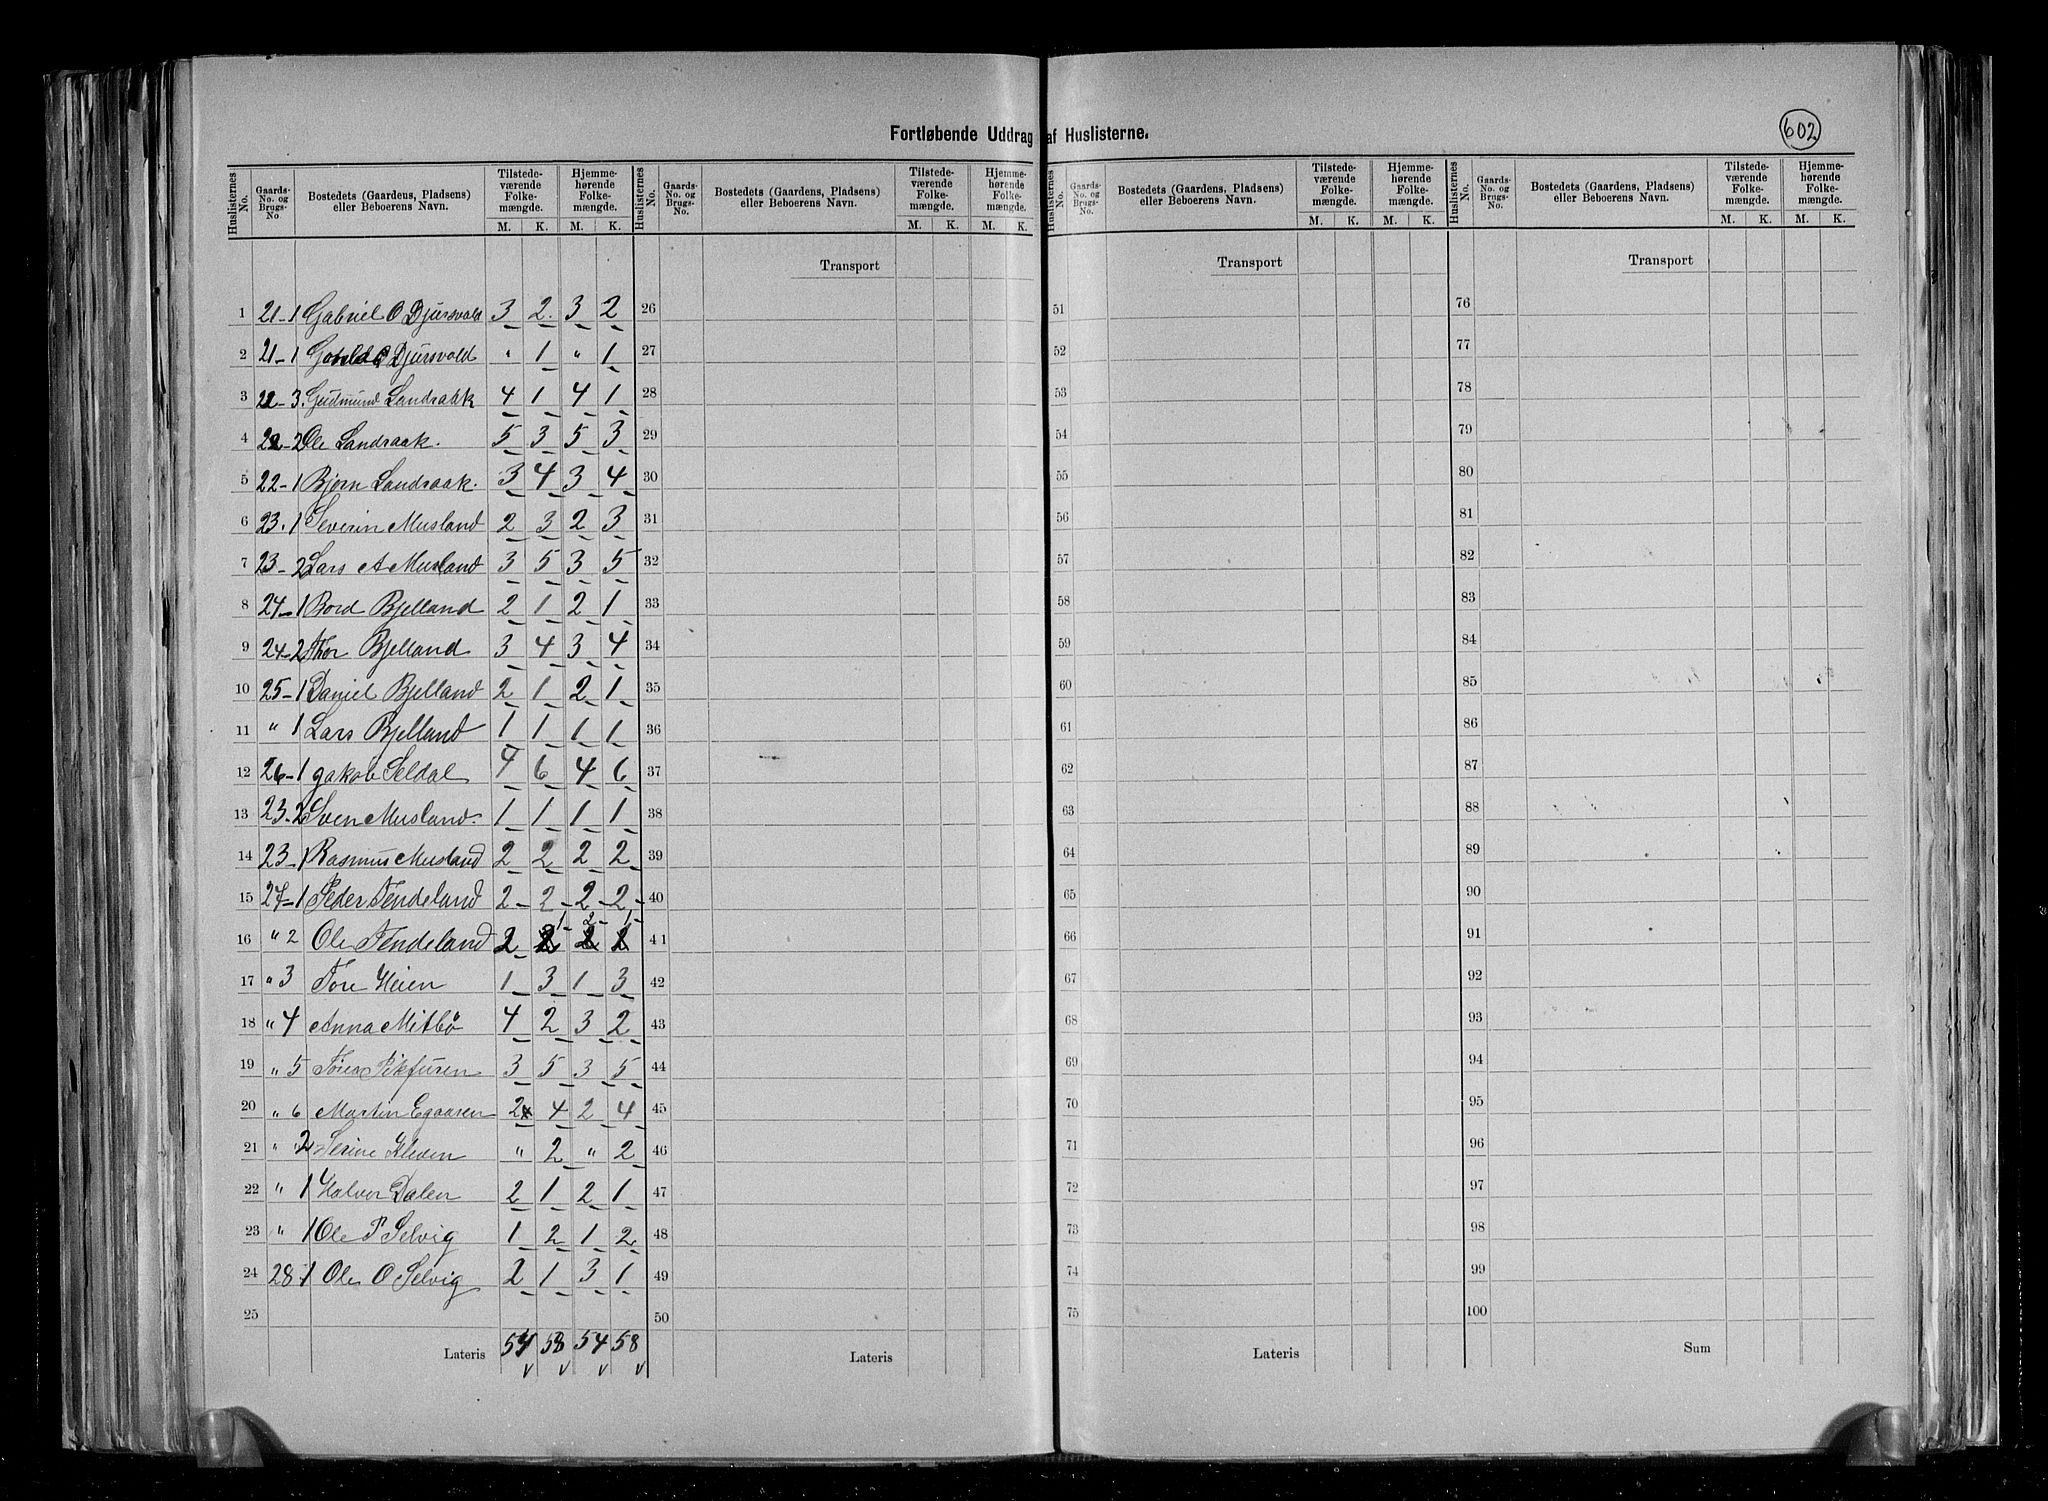 Fortløbende Uddrag af Huslisterne.
602
Huslisternes No. Gaards-No. og Brugs-No. Bostedets (Gaardens, Pladsens) eller Beboerens Navn. Tilstedeværende Folkemængde. M. K. Hjemmehørende Folkemængde. M. K.
Huslisternes No. Gaards-No. og Brugs-No. Bostedets (Gaardens, Pladsens) eller Beboerens Navn. Tilstedeværende Folkemængde. M. K. Hjemmehørende Folkemængde. M. K.
Huslisternes No. Gaards-No. og Brugs-No. Bostedets (Gaardens, Pladsens) eller Beboerens Navn. Tilstedeværende Folkemængde. M. K. Hjemmehørende Folkemængde. M. K.
Huslisternes No. Gaards-No. og Brugs-No. Bostedets (Gaardens, Pladsens) eller Beboerens Navn. Tilstedeværende Folkemængde. M. K. Hjemmehørende Folkemængde. M. K.
Transport Transport Transport
1 21-1 Gabriel O Djursvold 3 2 3 2 26 51 76
2 21-1 O Djursvold " 1 " 1 27 52 77
3 22-3. Gudmund Landraak 4 1 4 1 28 53 78
4 22-2 Ole Landraak. 5 3 5 3 29 54 79
5 22-1 Bjørn Landraak. 3 4 3 4 30 55 80
6 23.1 Severin Musland 2 3 2 3 31 56 81
7 23-2 Lars A Musland 3 5 3 5 32 57 82
8 24-1 Bord Bjelland 2 1 2 1 33 58 83
9 24-2 Thor Bjelland 3 4 3 4 34 59 84
10 25-1 Daniel Bjelland 2 1 2 1 35 60 85
11 " 1 Lars Bjelland 1 1 1 1 36 61 86
12 26-1 Jakob Seldal 4 6 4 6 37 62 87
13 23-2 Sven Musland. 1 1 1 1 38 63 88
14 23-1 Rasmus Musland 2 2 2 2 39 64 89
15 27-1 Peder Tendeland 2 2 2 2 40 65 90
16 " 2 Ole Tendeland 2 1 2 1 41 66 91
17 " 3 Tore Heien 1 3 1 3 42 67 92
18 " 4 Anna Mitbö 4 2 3 2 43 68 93
19 " 5 3 5 3 5 44 69 94
20 " 6 Martin Egaasen 2 4 2 4 45 70 95
21 " 2 Serine Kleven " 2 " 2 46 71 96
22 " 1 Halvor Dalen 2 1 2 1 47 72 97
23 " 1 Ole P Selvig 1 2 1 2 48 73 98
24 28-1 Ole O Selvig 2 1 3 1 49 74 99
25 50 75 100
Lateris 54 58 54 58 Lateris Lateris Sum